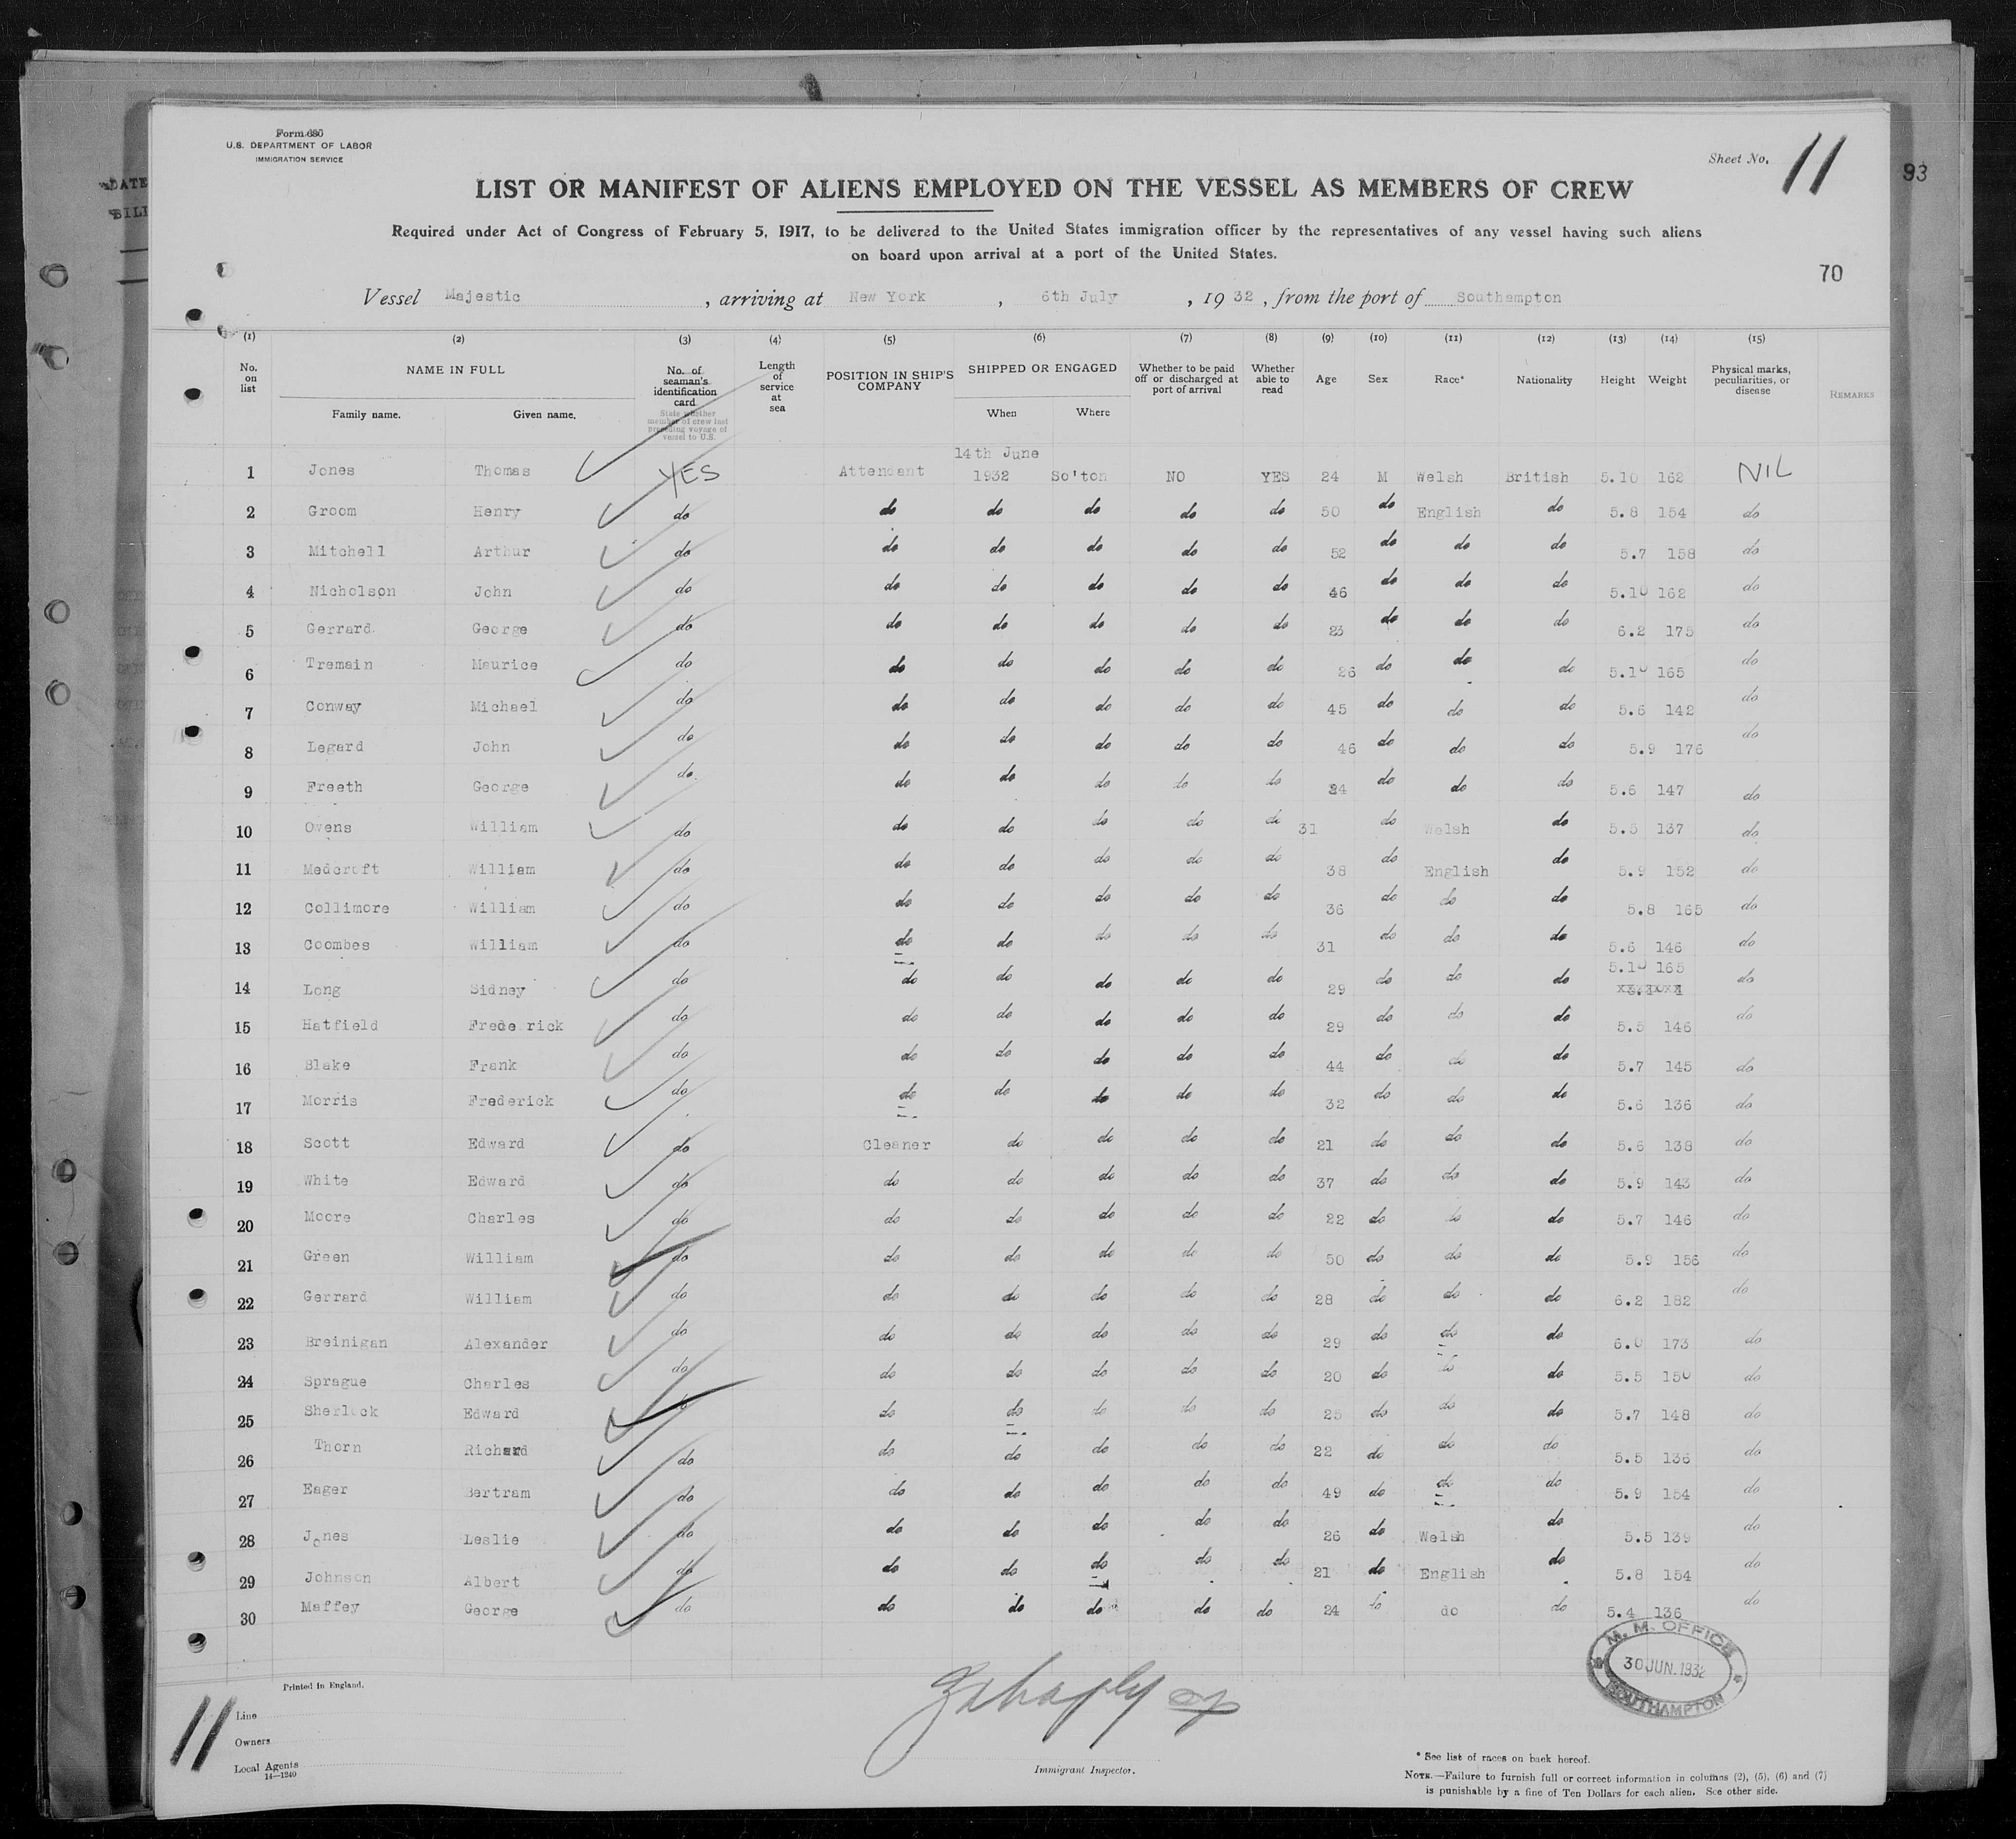 Form 680
U.S. DEPARTMENT OF LABOR
IMMIGRATION SERVICE
Sheet No. 11
93
LIST OR MANIFEST OF ALIENS EMPLOYED ON THE VESSEL AS MEMBERS OF CREW
Required under Act of Congress of February 5, 1917, to be delivered to the United States immigration officer by the representatives of any vessel having such aliens
on board upon arrival at a port of the United States.
70
Vessel Majestic , arriving at New York , 6th July , 1932 , from the port of Southampton
(1) (2) (3) (4) (5) (6) (7) (8) (9) (10) (11) (12) (13) (14) (15)
No. on list NAME IN FULL Family name. Given name. No. of seaman's identification card State whether member of crew last preceding voyage of vessel to U.S. Length of service at sea POSITION IN SHIP'S COMPANY SHIPPED OR ENGAGED When Where Whether to be paid off or discharged at port of arrival Whether able to read Age Sex Race* Nationality Height Weight Physical marks, peculiarities, or disease REMARKS
1 Jones Thomas YES Attendant 14th June 1932 So'ton NO YES 24 M Welsh British 5.10 162 NIL
2 Groom Henry do do do do do do 50 do English do 5.8 154 do
3 Mitchell Arthur do do do do do do 52 do do do 5.7 158 do
4 Nicholson John do do do do do do 46 do do do 5.10 162 do
5 Gerrard George do do do do do do 23 do do do 6.2 175 do
6 Tremain Maurice do do do do do do 26 do do do 5.10 165 do
7 Conway Michael do do do do do do 45 do do do 5.6 142 do
8 Legard John do do do do do do 46 do do do 5.9 176 do
9 Freeth George do do do do do do do do do 5.6 147 do
10 Owens William do do do do do do 31 do Welsh do 5.5 137 do
11 Medcroft William do do do do do do 38 do English do 5.9 152 do
12 Collimore William do do do do do do 36 do do do 5.8 165 do
13 Coombes William do do do do do do 31 do do do 5.6 146 do
14 Long Sidney do do do do do do 29 do do do 5.10 165 do
15 Hatfield Frederick do do do do do do 29 do do do 5.5 146 do
16 Blake Frank do do do do do do 44 do do do 5.7 145 do
17 Morris Frederick do do do do do do 32 do do do 5.6 136 do
18 Scott Edward do Cleaner do do do do 21 do do do 5.6 138 do
19 White Edward do do do do do do 37 do do do 5.9 143 do
20 Moore Charles do do do do do do 22 do do do 5.7 146 do
21 Green William do do do do do do 50 do do do 5.9 156 do
22 Gerrard William do do do do do do 28 do do do 6.2 182 do
23 Breinigan Alexander do do do do do do 29 do do do 6.0 173 do
24 Sprague Charles do do do do do do 20 do do do 5.5 150 do
25 Sherlock Edward do do do do do do 25 do do do 5.7 148 do
26 Thorn Richard do do do do do do 22 do do do 5.5 136 do
27 Eager Bertram do do do do do do 49 do do do 5.9 154 do
28 Jones Leslie do do do do do do 26 do Welsh do 5.5 139 do
29 Johnson Albert do do do do do do 21 do English do 5.8 154 do
30 Maffey George do do do do do do 24 do do do 5.4 136 do
M. M. OFFICE
30 JUN. 1932
SOUTHAMPTON
Printed in England.
11
Line
Owners
Local Agents
14—1240
Immigrant Inspector.
* See list of races on back hereof.
NOTE.—Failure to furnish full or correct information in columns (2), (5), (6) and (7)
is punishable by a fine of Ten Dollars for each alien. See other side.